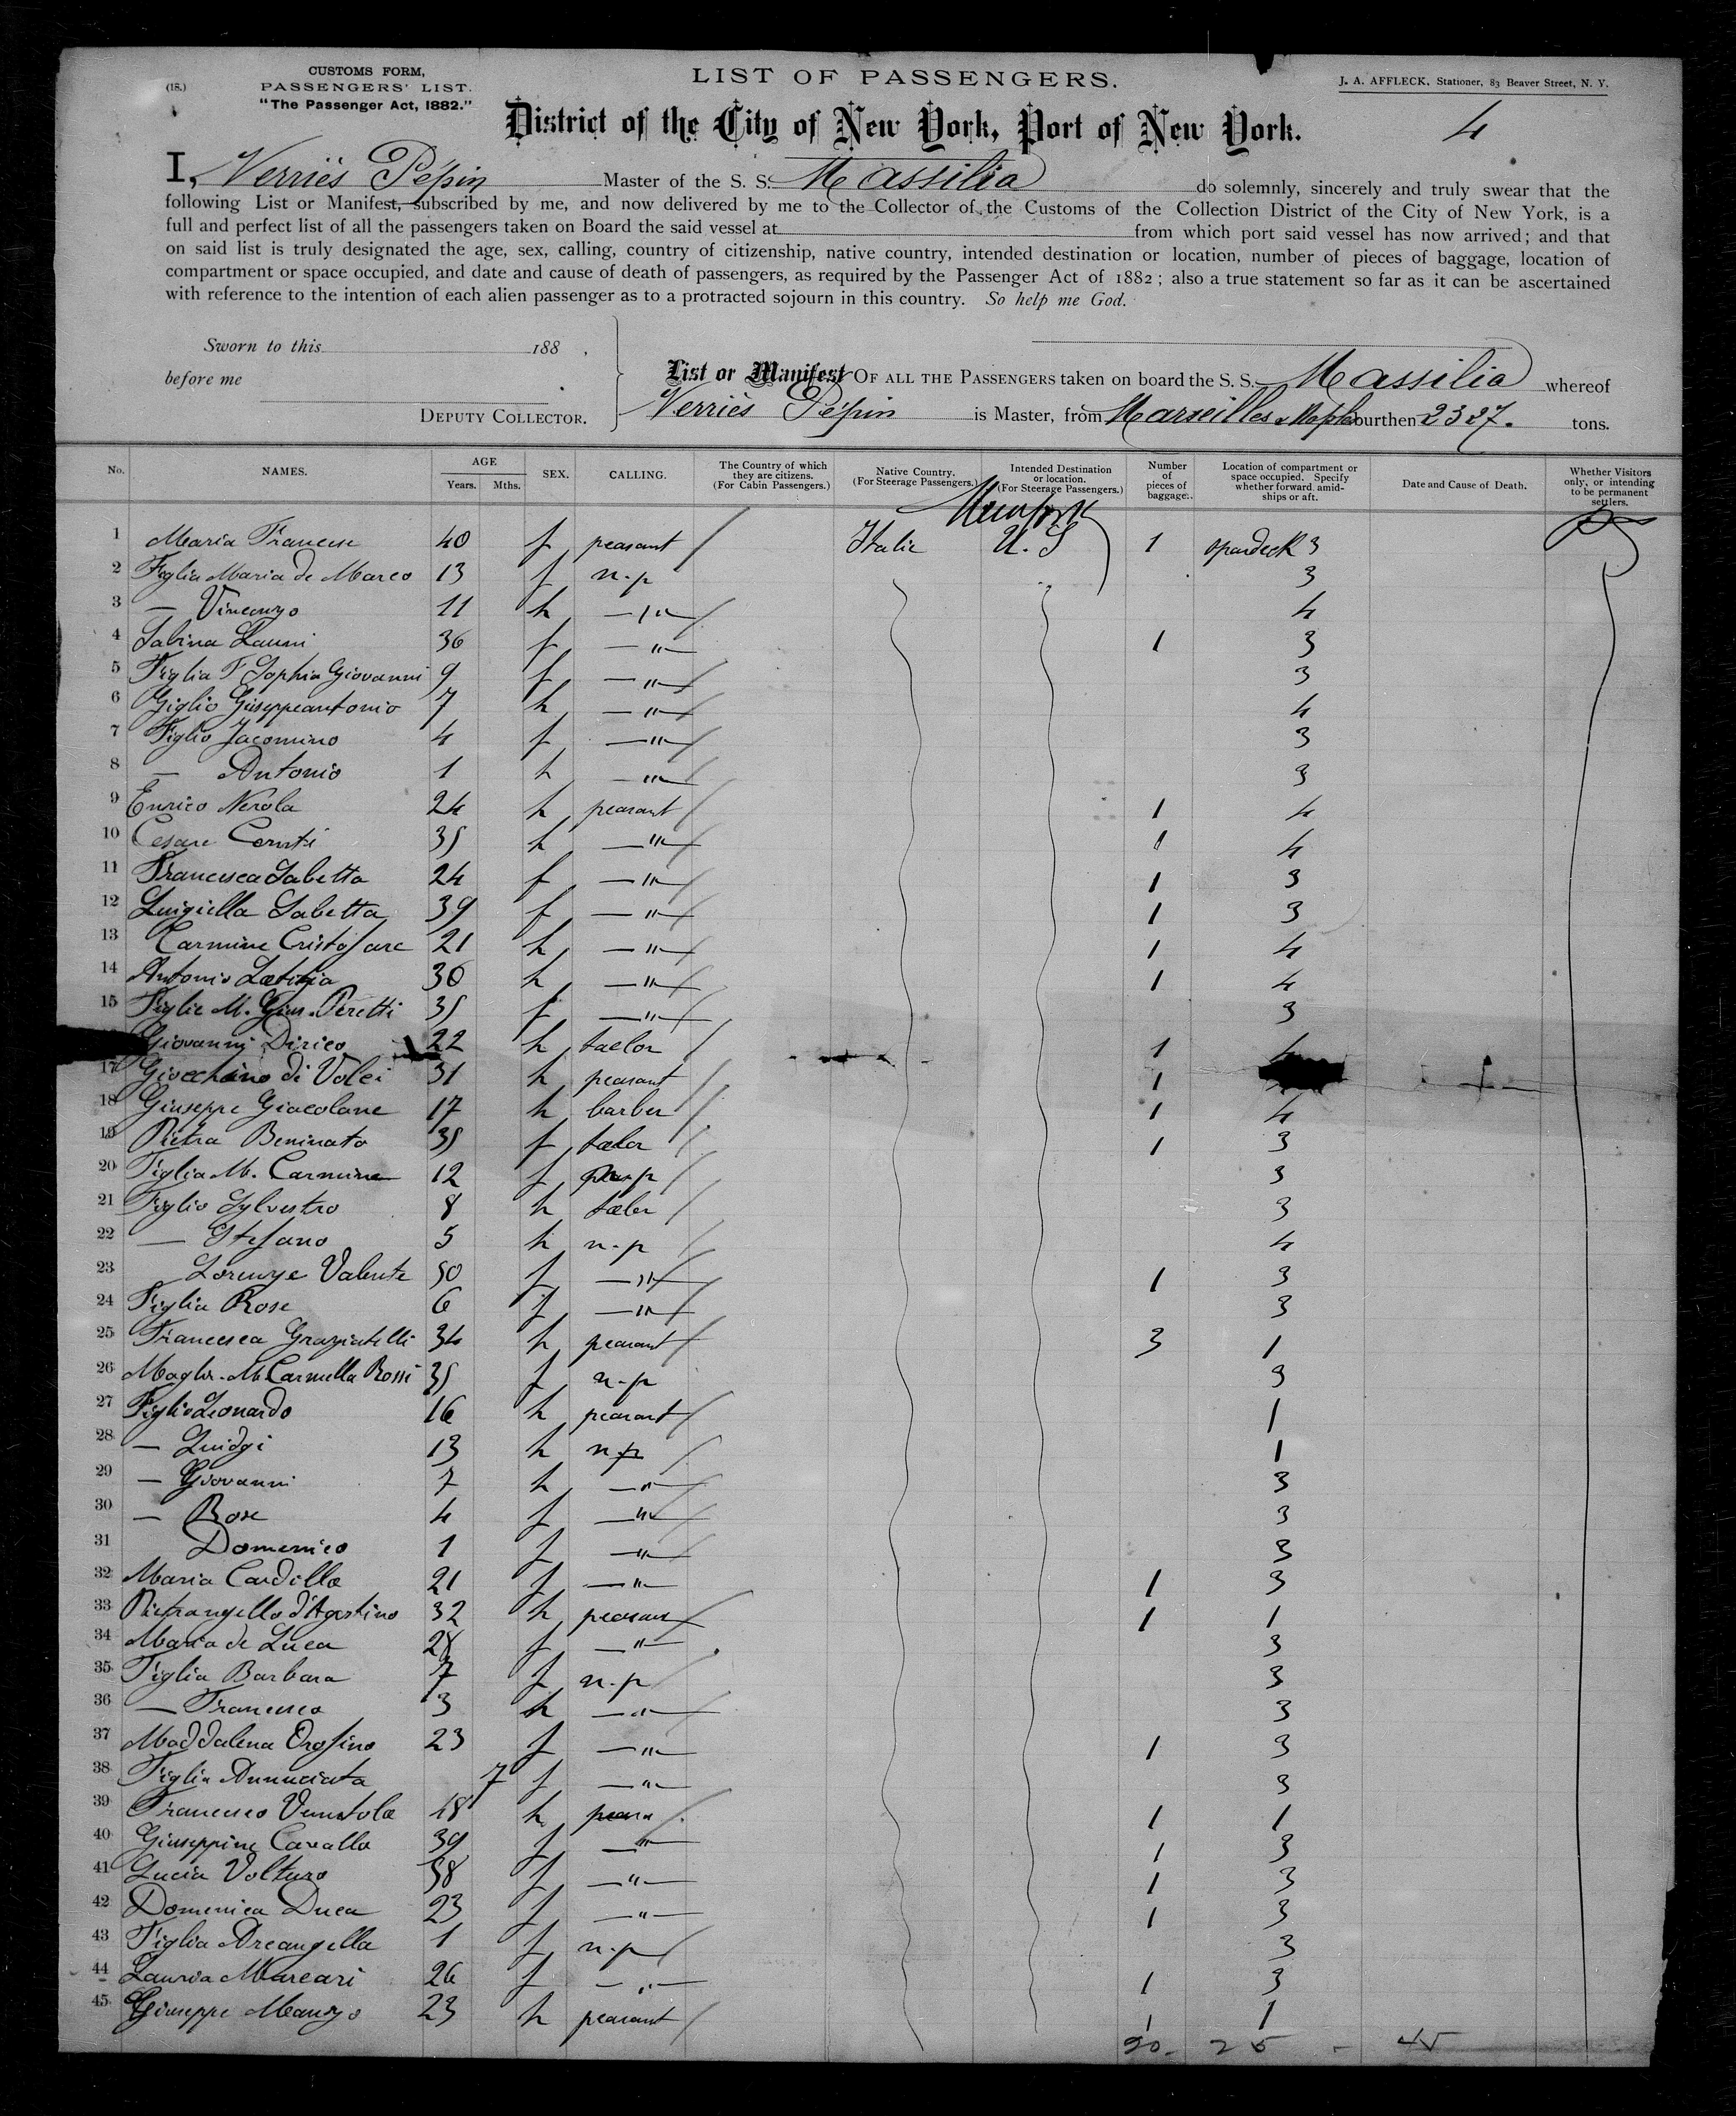 (18.)
CUSTOMS FORM,
PASSENGERS' LIST.
"The Passenger Act, 1882."
LIST OF PASSENGERS.
J. A. AFFLECK, Stationer, 83 Beaver Street, N. Y.
District of the City of New York, Port of New York.
4
I, Verriés Pépin Master of the S. S. Massilia do solemnly, sincerely and truly swear that the
following List or Manifest, subscribed by me, and now delivered by me to the Collector of the Customs of the Collection District of the City of New York, is a
full and perfect list of all the passengers taken on Board the said vessel at from which port said vessel has now arrived; and that
on said list is truly designated the age, sex, calling, country of citizenship, native country, intended destination or location, number of pieces of baggage, location of
compartment or space occupied, and date and cause of death of passengers, as required by the Passenger Act of 1882; also a true statement so far as it can be ascertained
with reference to the intention of each alien passenger as to a protracted sojourn in this country. So help me God.
Sworn to this 188 ,
before me
DEPUTY COLLECTOR.
List or Manifest OF ALL THE PASSENGERS taken on board the S. S. Massilia whereof
Verriés Pépin is Master, from Marseilles & Naples burthen 2327. tons.
No. NAMES. AGE Years. Mths. SEX. CALLING. The Country of which they are citizens. (For Cabin Passengers.) Native Country. (For Steerage Passengers.) Intended Destination or location. (For Steerage Passengers.) Number of pieces of baggage. Location of compartment or space occupied. Specify whether forward, amidships or aft. Date and Cause of Death. Whether Visitors only, or intending to be permanent settlers.
Newyork
1 Maria Francese 40 f peasant Italie U. S 1 spardeck 3
2 Figlia Maria de Marco 13 f n.p 3
3 — Vincenzo 11 h —"— 4
4 Sabina Launi 36 f —"— 1 3
5 Figlia F Sophia Giovanni 9 f —"— 3
6 Giglio Giuseppeantonio 7 h —"— 4
7 Figlio Jacomino 4 f —"— 3
8 — Antonio 1 h —"— 3
9 Enrico Nerola 24 h peasant 1 4
10 Cesare Cerutti 35 h —"— 1 4
11 Francesca Sabetta 24 f —"— 1 3
12 Luigiella Sabetta 39 f —"— 1 3
13 Carmine Cristofare 21 h —"— 1 4
14 Antonio Latizia 30 h —"— 1 4
15 Figlie M. Gius. Peretti 35 f —"— 3
Giovanni Dirico 22 h taelor 1 4
17 Giocchino di Volei 31 h peasant 1
18 Giuseppe Giacolane 17 h barber 1 4
19 Pietra Beninato 35 f taelor 1 3
20 Figlia M. Carmine 12 f n.p 3
21 Figlio Sylvestro 8 h taelor 3
22 — Stefano 5 h n.p 4
23 Lorenze Valente 50 f —"— 1 3
24 Figlia Rose 6 f —"— 3
25 Francesca Graziatelli 34 h peasant 3 1
26 Moglie M. Carmella Rossi 35 f n.p 3
27 Figlio Leonardo 16 h peasant 1
28 — Luidgi 13 h n.p 1
29 — Giovanni 7 h —"— 3
30 — Rose 4 f —"— 3
31 Domenico 1 f —"— 3
32 Maria Cardilla 21 f —"— 1 3
33 Pietrangello d'Agostino 32 h peasant 1 1
34 Maria de Luca 28 f —"— 3
35 Figlia Barbara 7 f n.p 3
36 — Francesco 3 h —"— 3
37 Maddalena Orofino 23 f —"— 1 3
38 Figlia Annunciata 7 f —"— 3
39 Francesco Venetola 48 h peasa 1 1
40 Giuseppina Cavalla 39 f —"— 1 3
41 Lucia Volturo 58 f —"— 1 3
42 Domenica Duca 23 f —"— 1 3
43 Figlia Arcangella 1 f n.p 3
44 Lauria Marcari 26 f —"— 1 3
45 Giuseppe Manzo 23 h peasant 1 1
20 - 25 - 45